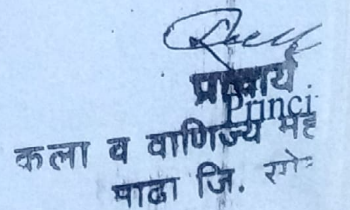 प्राचार्य
Princi
कला व वाणिज्य मह
माढा जि.